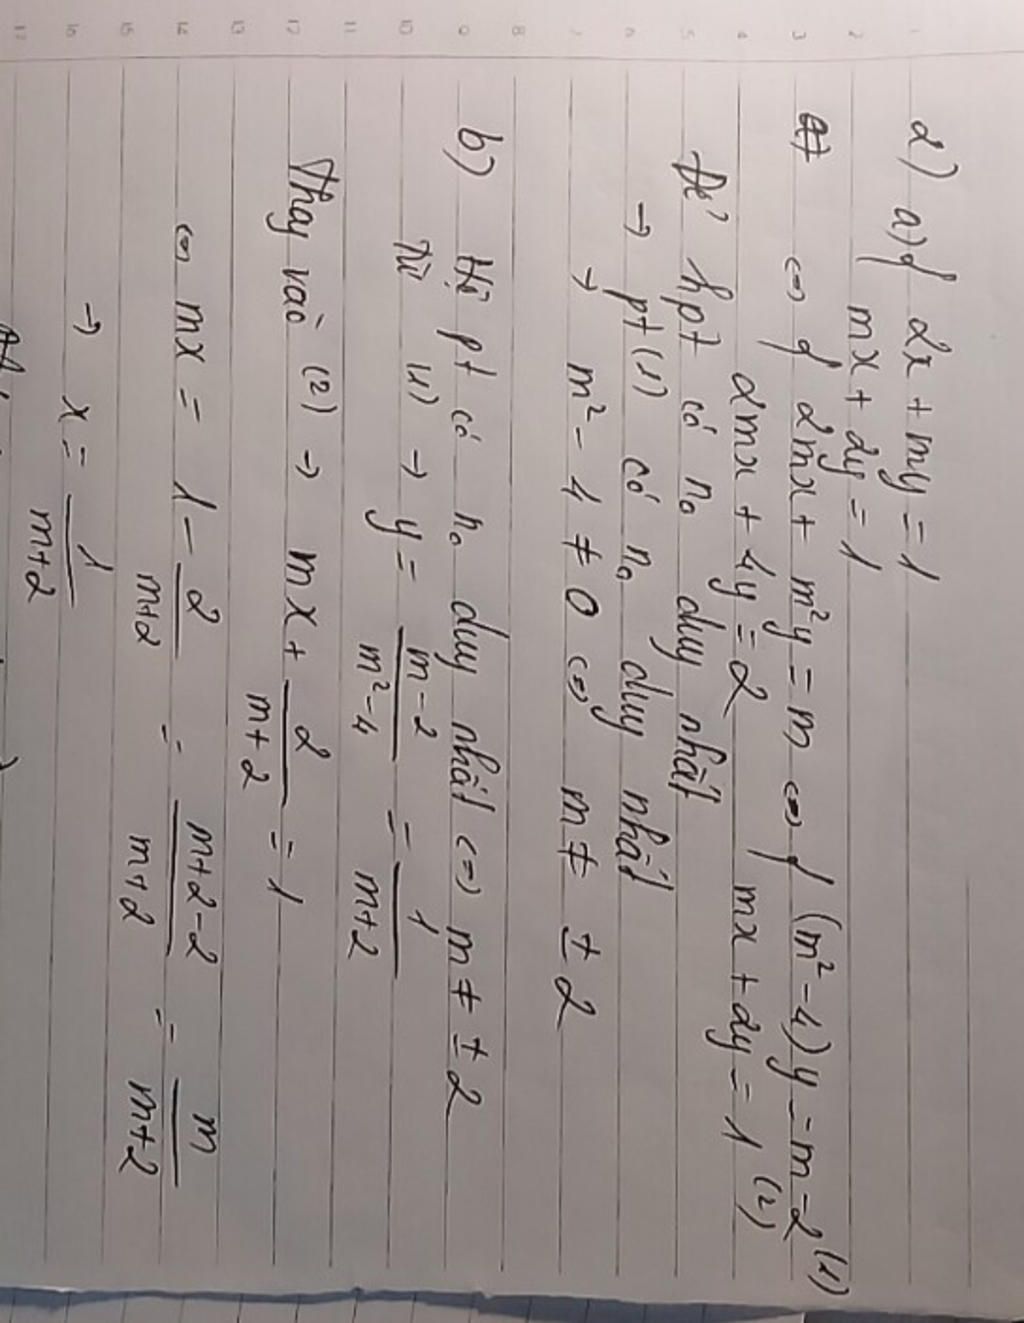 2) a) { 2x + my = 1
mx + 2y = 1
<=> { 2mx + m²y = m <=> { (m² - 4)y = m - 2 (1)
2mx + 4y = 2 mx + 2y = 1 (2)
Để hpt có n₀ duy nhất
→ pt (1) có n₀ duy nhất
→ m² - 4 ≠ 0 <=> m ≠ ± 2
b) Hệ pt có n₀ duy nhất <=> m ≠ ± 2
Từ (1) → y = \frac{m-2}{m²-4} = \frac{1}{m+2}
Thay vào (2) → mx + \frac{2}{m+2} = 1
<=> mx = 1 - \frac{2}{m+2} = \frac{m+2-2}{m+2} = \frac{m}{m+2}
→ x = \frac{1}{m+2}